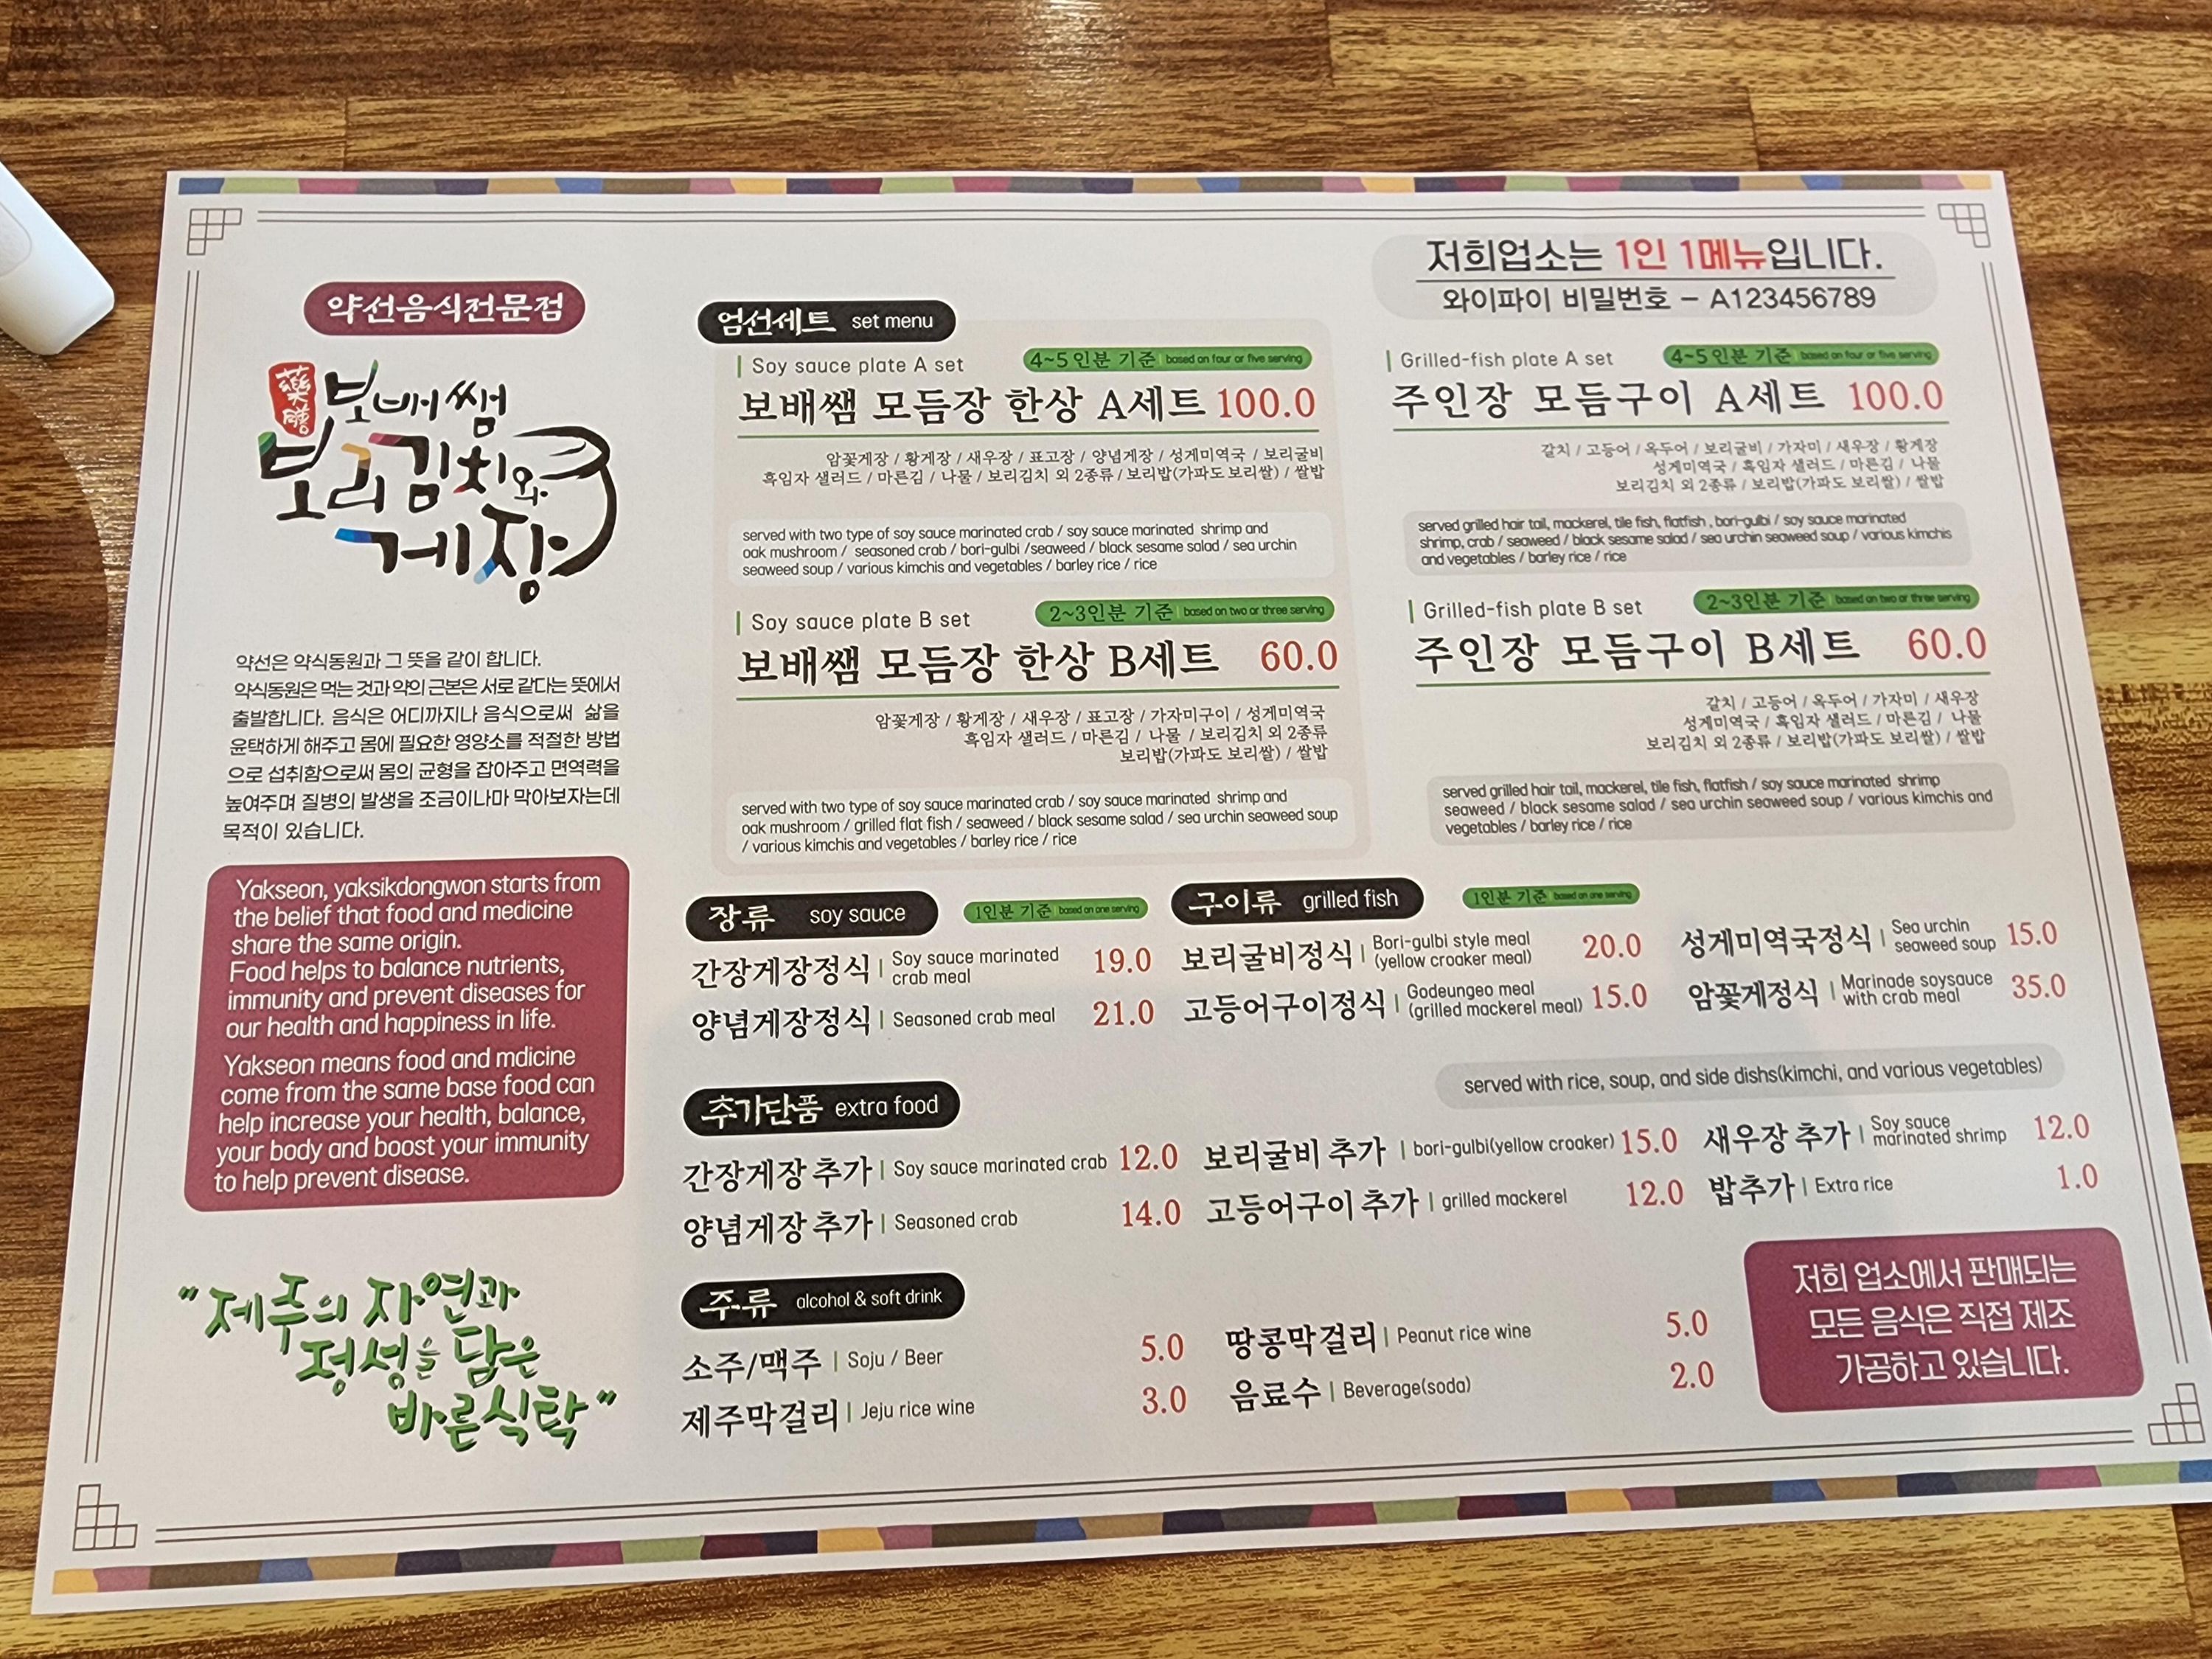 약선음식전문점
藥膳
보배쌤
보리김치와
게장
약선은 약식동원과 그 뜻을 같이 합니다.
약식동원은 먹는 것과 약의 근본은 서로 같다는 뜻에서
출발합니다. 음식은 어디까지나 음식으로써 삶을
윤택하게 해주고 몸에 필요한 영양소를 적절한 방법
으로 섭취함으로써 몸의 균형을 잡아주고 면역력을
높여주며 질병의 발생을 조금이나마 막아보자는데
목적이 있습니다.
Yakseon, yaksikdongwon starts from
the belief that food and medicine
share the same origin.
Food helps to balance nutrients,
immunity and prevent diseases for
our health and happiness in life.
Yakseon means food and mdicine
come from the same base food can
help increase your health, balance,
your body and boost your immunity
to help prevent disease.
"제주의 자연과
정성을 담은
바른식탁"
저희업소는 1인 1메뉴입니다.
와이파이 비밀번호 - A123456789
엄선세트 set menu
Soy sauce plate A set 4~5인분 기준 based on four or five serving
보배쌤 모듬장 한상 A세트 100.0
암꽃게장 / 황게장 / 새우장 / 표고장 / 양념게장 / 성게미역국 / 보리굴비
흑임자 샐러드 / 마른김 / 나물 / 보리김치 외 2종류 / 보리밥(가파도 보리쌀) / 쌀밥
served with two type of soy sauce marinated crab / soy sauce marinated shrimp and
oak mushroom / seasoned crab / bori-gulbi /seaweed / black sesame salad / sea urchin
seaweed soup / various kimchis and vegetables / barley rice / rice
Soy sauce plate B set 2~3인분 기준 based on two or three serving
보배쌤 모듬장 한상 B세트 60.0
암꽃게장 / 황게장 / 새우장 / 표고장 / 가자미구이 / 성게미역국
흑임자 샐러드 / 마른김 / 나물 / 보리김치 외 2종류
보리밥(가파도 보리쌀) / 쌀밥
served with two type of soy sauce marinated crab / soy sauce marinated shrimp and
oak mushroom / grilled flat fish / seaweed / black sesame salad / sea urchin seaweed soup
/ various kimchis and vegetables / barley rice / rice
Grilled-fish plate A set 4~5인분 기준 based on four or five serving
주인장 모듬구이 A세트 100.0
갈치 / 고등어 / 옥두어 / 보리굴비 / 가자미 / 새우장 / 황게장
성게미역국 / 흑임자 샐러드 / 마른김 / 나물
보리김치 외 2종류 / 보리밥(가파도 보리쌀) / 쌀밥
served grilled hair tail, mackerel, tile fish, flatfish , bori-gulbi / soy sauce marinated
shrimp, crab / seaweed / black sesame salad / sea urchin seaweed soup / various kimchis
and vegetables / barley rice / rice
Grilled-fish plate B set 2~3인분 기준 based on two or three serving
주인장 모듬구이 B세트 60.0
갈치 / 고등어 / 옥두어 / 가자미 / 새우장
성게미역국 / 흑임자 샐러드 / 마른김 / 나물
보리김치 외 2종류 / 보리밥(가파도 보리쌀) / 쌀밥
served grilled hair tail, mackerel, tile fish, flatfish / soy sauce marinated shrimp
seaweed / black sesame salad / sea urchin seaweed soup / various kimchis and
vegetables / barley rice / rice
장류 soy sauce 1인분 기준 based on one serving
간장게장정식 Soy sauce marinated crab meal 19.0
양념게장정식 Seasoned crab meal 21.0
구이류 grilled fish 1인분 기준 based on one serving
보리굴비정식 Bori-gulbi style meal (yellow croaker meal) 20.0
고등어구이정식 Godeungeo meal (grilled mackerel meal) 15.0
성게미역국정식 Sea urchin seaweed soup 15.0
암꽃게정식 Marinade soysauce with crab meal 35.0
served with rice, soup, and side dishs(kimchi, and various vegetables)
추가단품 extra food
간장게장 추가 Soy sauce marinated crab 12.0
양념게장 추가 Seasoned crab 14.0
보리굴비 추가 bori-gulbi(yellow croaker) 15.0
고등어구이 추가 grilled mackerel 12.0
새우장 추가 Soy sauce marinated shrimp 12.0
밥추가 Extra rice 1.0
주류 alcohol & soft drink
소주/맥주 Soju / Beer 5.0
제주막걸리 Jeju rice wine 3.0
땅콩막걸리 Peanut rice wine 5.0
음료수 Beverage(soda) 2.0
저희 업소에서 판매되는
모든 음식은 직접 제조
가공하고 있습니다.